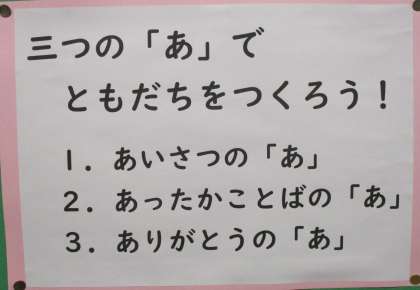 三つの「あ」で
ともだちをつくろう！
1．あいさつの「あ」
2．あったかことばの「あ」
3．ありがとうの「あ」